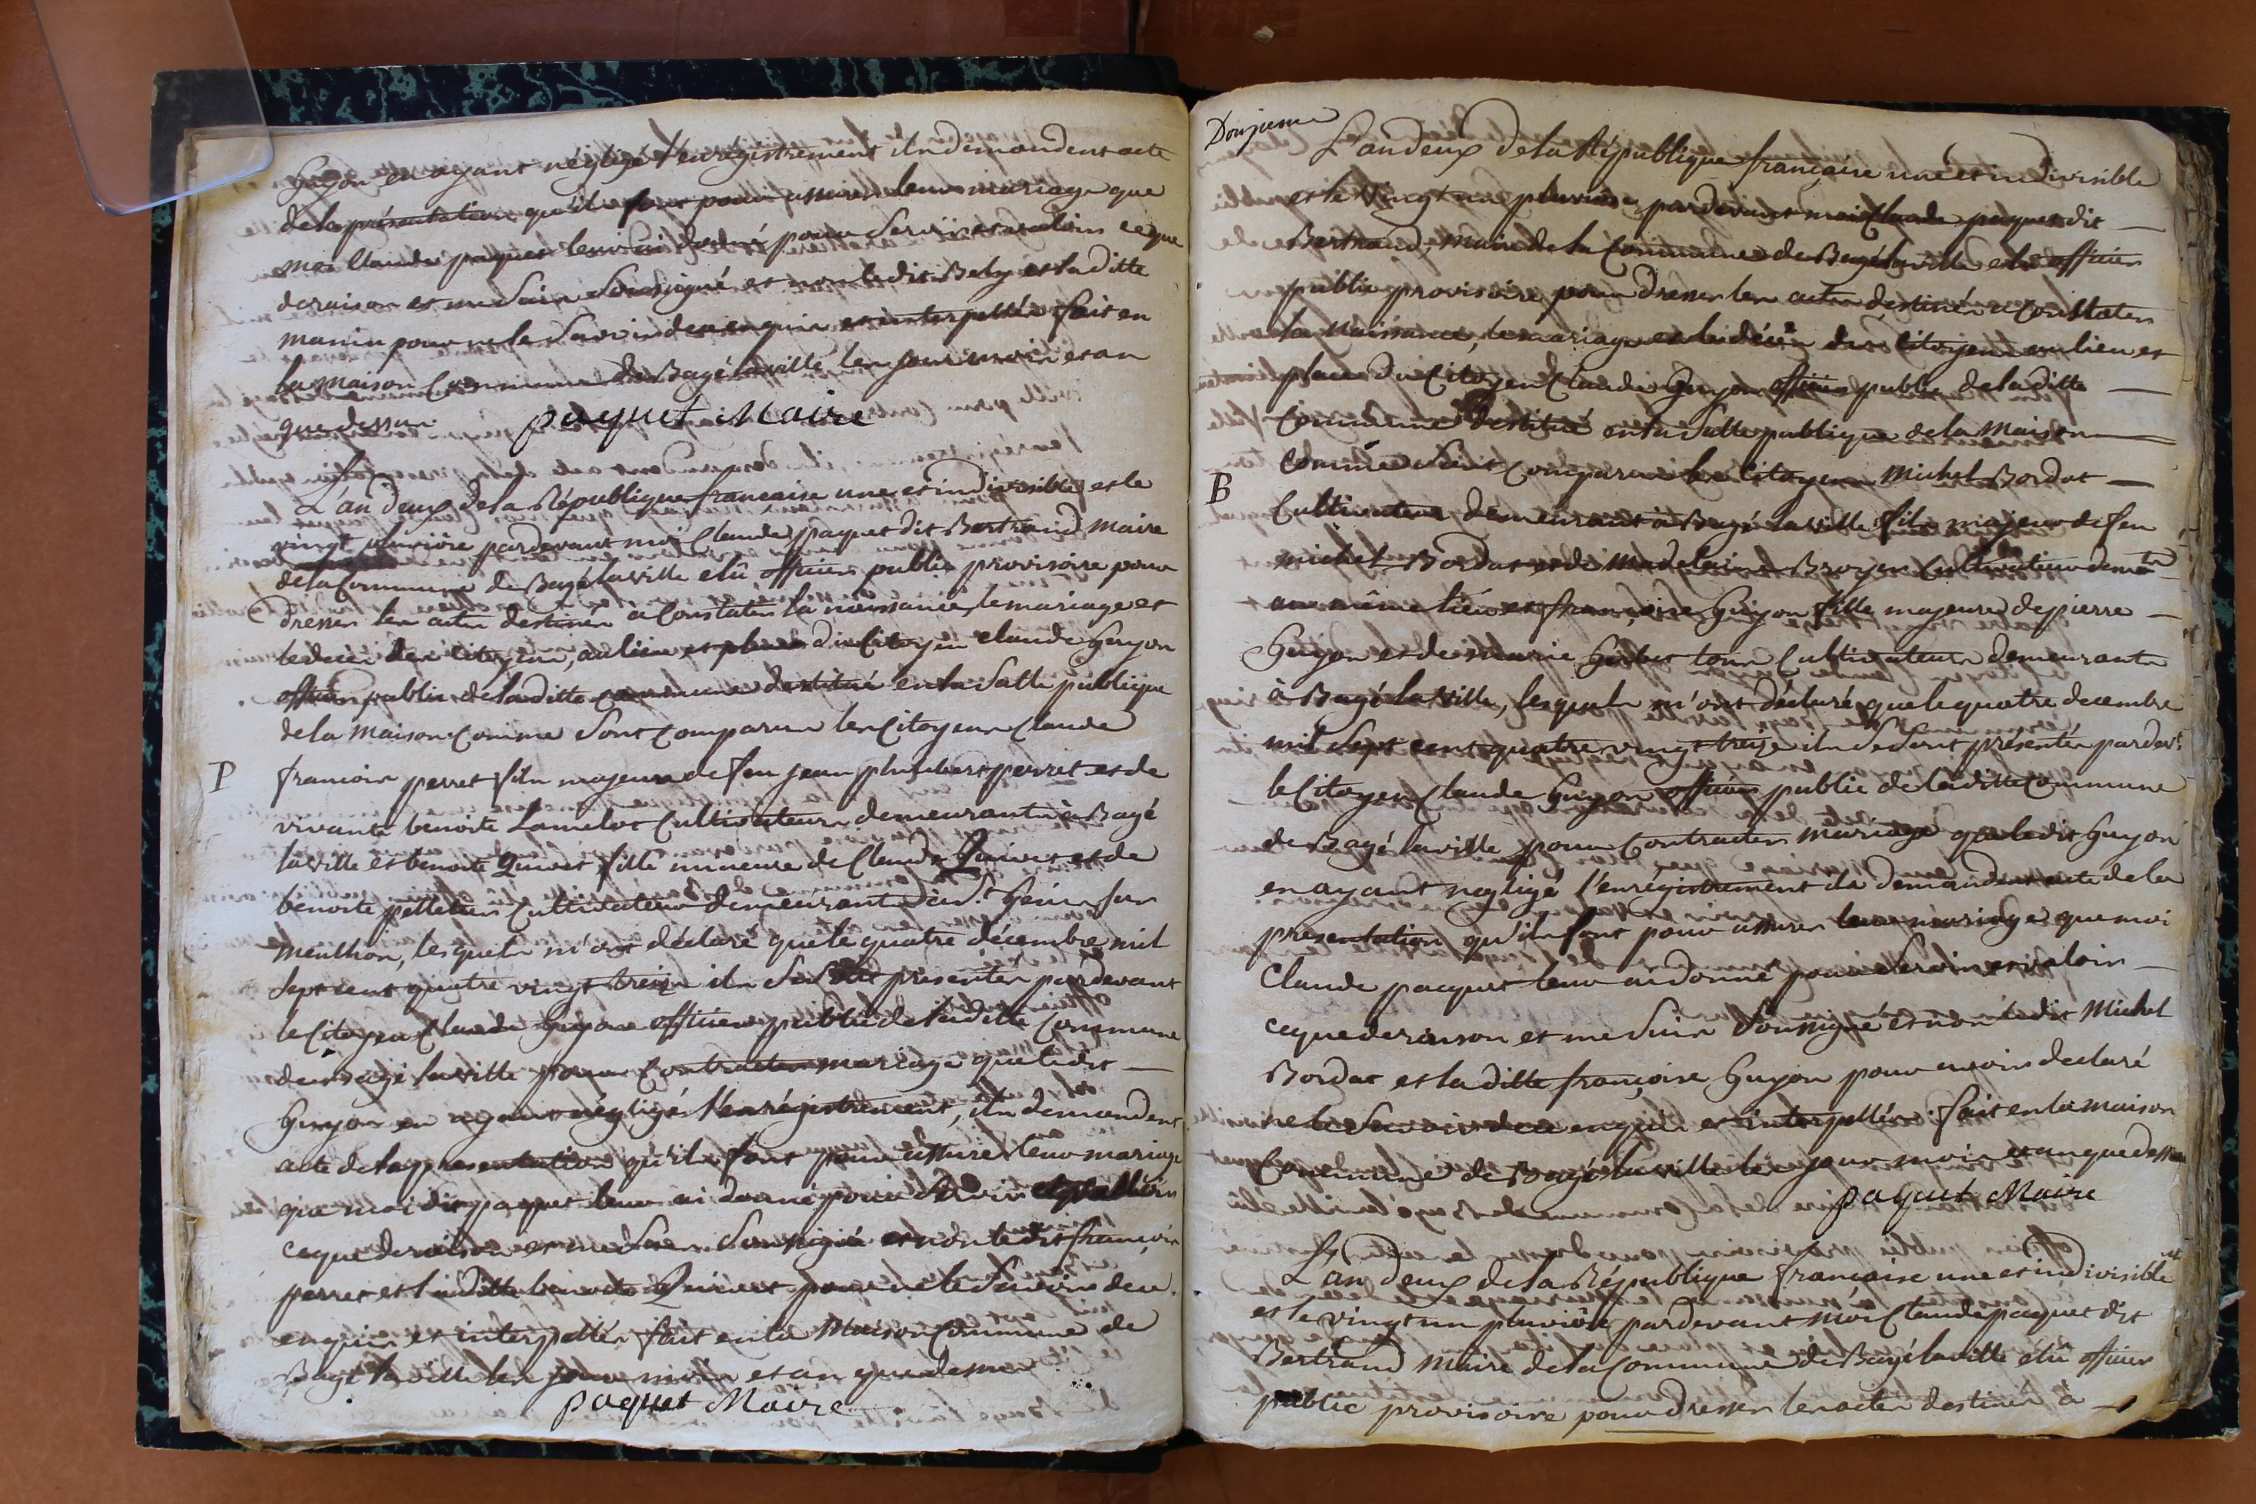 Guyon en ayant négligé l'enregistrement iln demandent acte
dela présentation qu'iln font pour assurer leur mariage que
moi Claude paquet leur ai donné pour servir et valoir ce que
de raison et me suin soussigné et non le dit Bely et la ditte
manin pour ne le savoir de ce enquin et interpellén fait en
la maison Commune de Bagé laville len jour moin et an
que dessun
paquet Maire
L'an deux de la République francaise une et indivisible et le
vingt pluviôse pardevant moi Claude paquet dit Bertrand Maire
dela Commune de Bagé laville elû officier public provisoire pour
dresser len acten destinén à Constater la naissance, le mariage et
le décén den Citoyenn, au lieu et place du Citoyen claude Guyon
officier public de laditte commune destitué en la Salle publique
dela Maison Comme sont comparun len Citoyenn Claude
P
francoin perret filn majeur de feu jean philibert perret et de
vivante benoite Lamelot Cultivateurn demeurantn à Bagé
laville et benoite Quivet fille mineure de Claude Quivet et de
benoite pelletier Cultivateurn demeurantn à St. Genin sur
menthon, lesqueln m'ont déclaré que le quatre décembre mil
sept cent quatre vingt treize iln se sont présentén pardevant
le Citoyen Claude Guyon officier public de laditte Commune
de Bagé laville pour Contracter mariage que le dit
Guyon en ayant négligé l'enrégistrement, iln demandent
acte de la présentation qu'iln font pour assurer leur mariage
que moi dit paquet leur ai donné pour servir et valloir
ce que de raison et me suin soussigné et non le dit françoin
perret et laditte benoite Quivet pour ne le savoir de ce
enquin et interpellén fait en la Maison Commune de
Bagé laville len jour moin et an que dessun
paquet Maire
Douzieme
L'an deux de la République française une et indivisible
et le vingt un pluviôse pardevant moi Claude paquet dit
Bertrand, Maire de la Commune de Bagé laville elû officier
public provisoire pour dresser len acten destinén a Constater
la naissance, le mariage et le décén den Citoyenn au lieu et
place du Citoyen Claude Guyon officier public de laditte
Commune destitué en la Salle publique de la Maison
comme sont comparun len Citoyenn Michel Bordat
B
Cultivateur demeurant à Bagé laville filn majeur de feu
michel Bordat et de madelaine Broyer Cultivateurn demtn
au même lieu et françoise Guyon fille majeure de pierre
Guyon et de marie toun Cultivateurn demeurantn
à Bagé laville, lesqueln m'ont déclaré que le quatre decembre
mil sept cent quatre vingt treize iln se sont présentén pardevt
le Citoyen Claude Guyon officier public de laditte Commune
de Bagé laville pour Contracter mariage que le dit Guyon
en ayant négligé l'enrégistrement iln demandent acte de la
présentation qu'iln font pour assurer leur mariage que moi
Claude pacquet leur ai donné pour servir et valoir
ce que de raison et me suin soussigné et non le dit Michel
Bordat et la ditte françoise Guyon pour avoir declaré
ne le savoir de ce enquin et interpellén. fait en la maison
Commune de Bagé laville len jour moin et an que dessun
paquet Maire
L'an deux de la République francaise une et indivisible
et le vingt un pluviôse pardevant moi Claude paquet dit
Bertrand maire de la Commune de Bagé laville élû officier
public provisoire pour dresser len acten destinén à